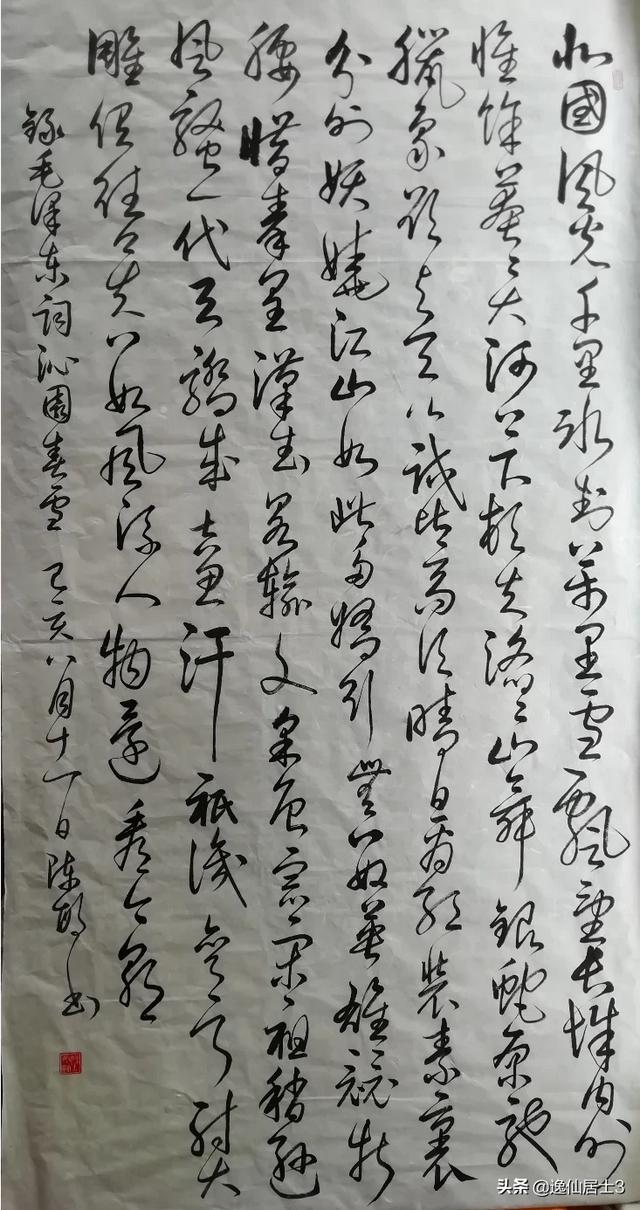 北國風光千里冰封萬里雪飄望長城內外
惟餘莽々大河上下頓失滔々山舞銀蛇原馳
臘象欲與天公試比高須晴日看紅裝素裹
分外妖嬈江山如此多嬌引無數英雄競折
腰惜秦皇漢武略輸文采唐宗宋祖稍遜
風騷一代天驕成吉思汗祇識彎弓射大
雕俱往矣數風流人物還看今朝
錄毛澤东詞沁園春雪 己亥八月十一日陈书
头条 @逸仙居士3